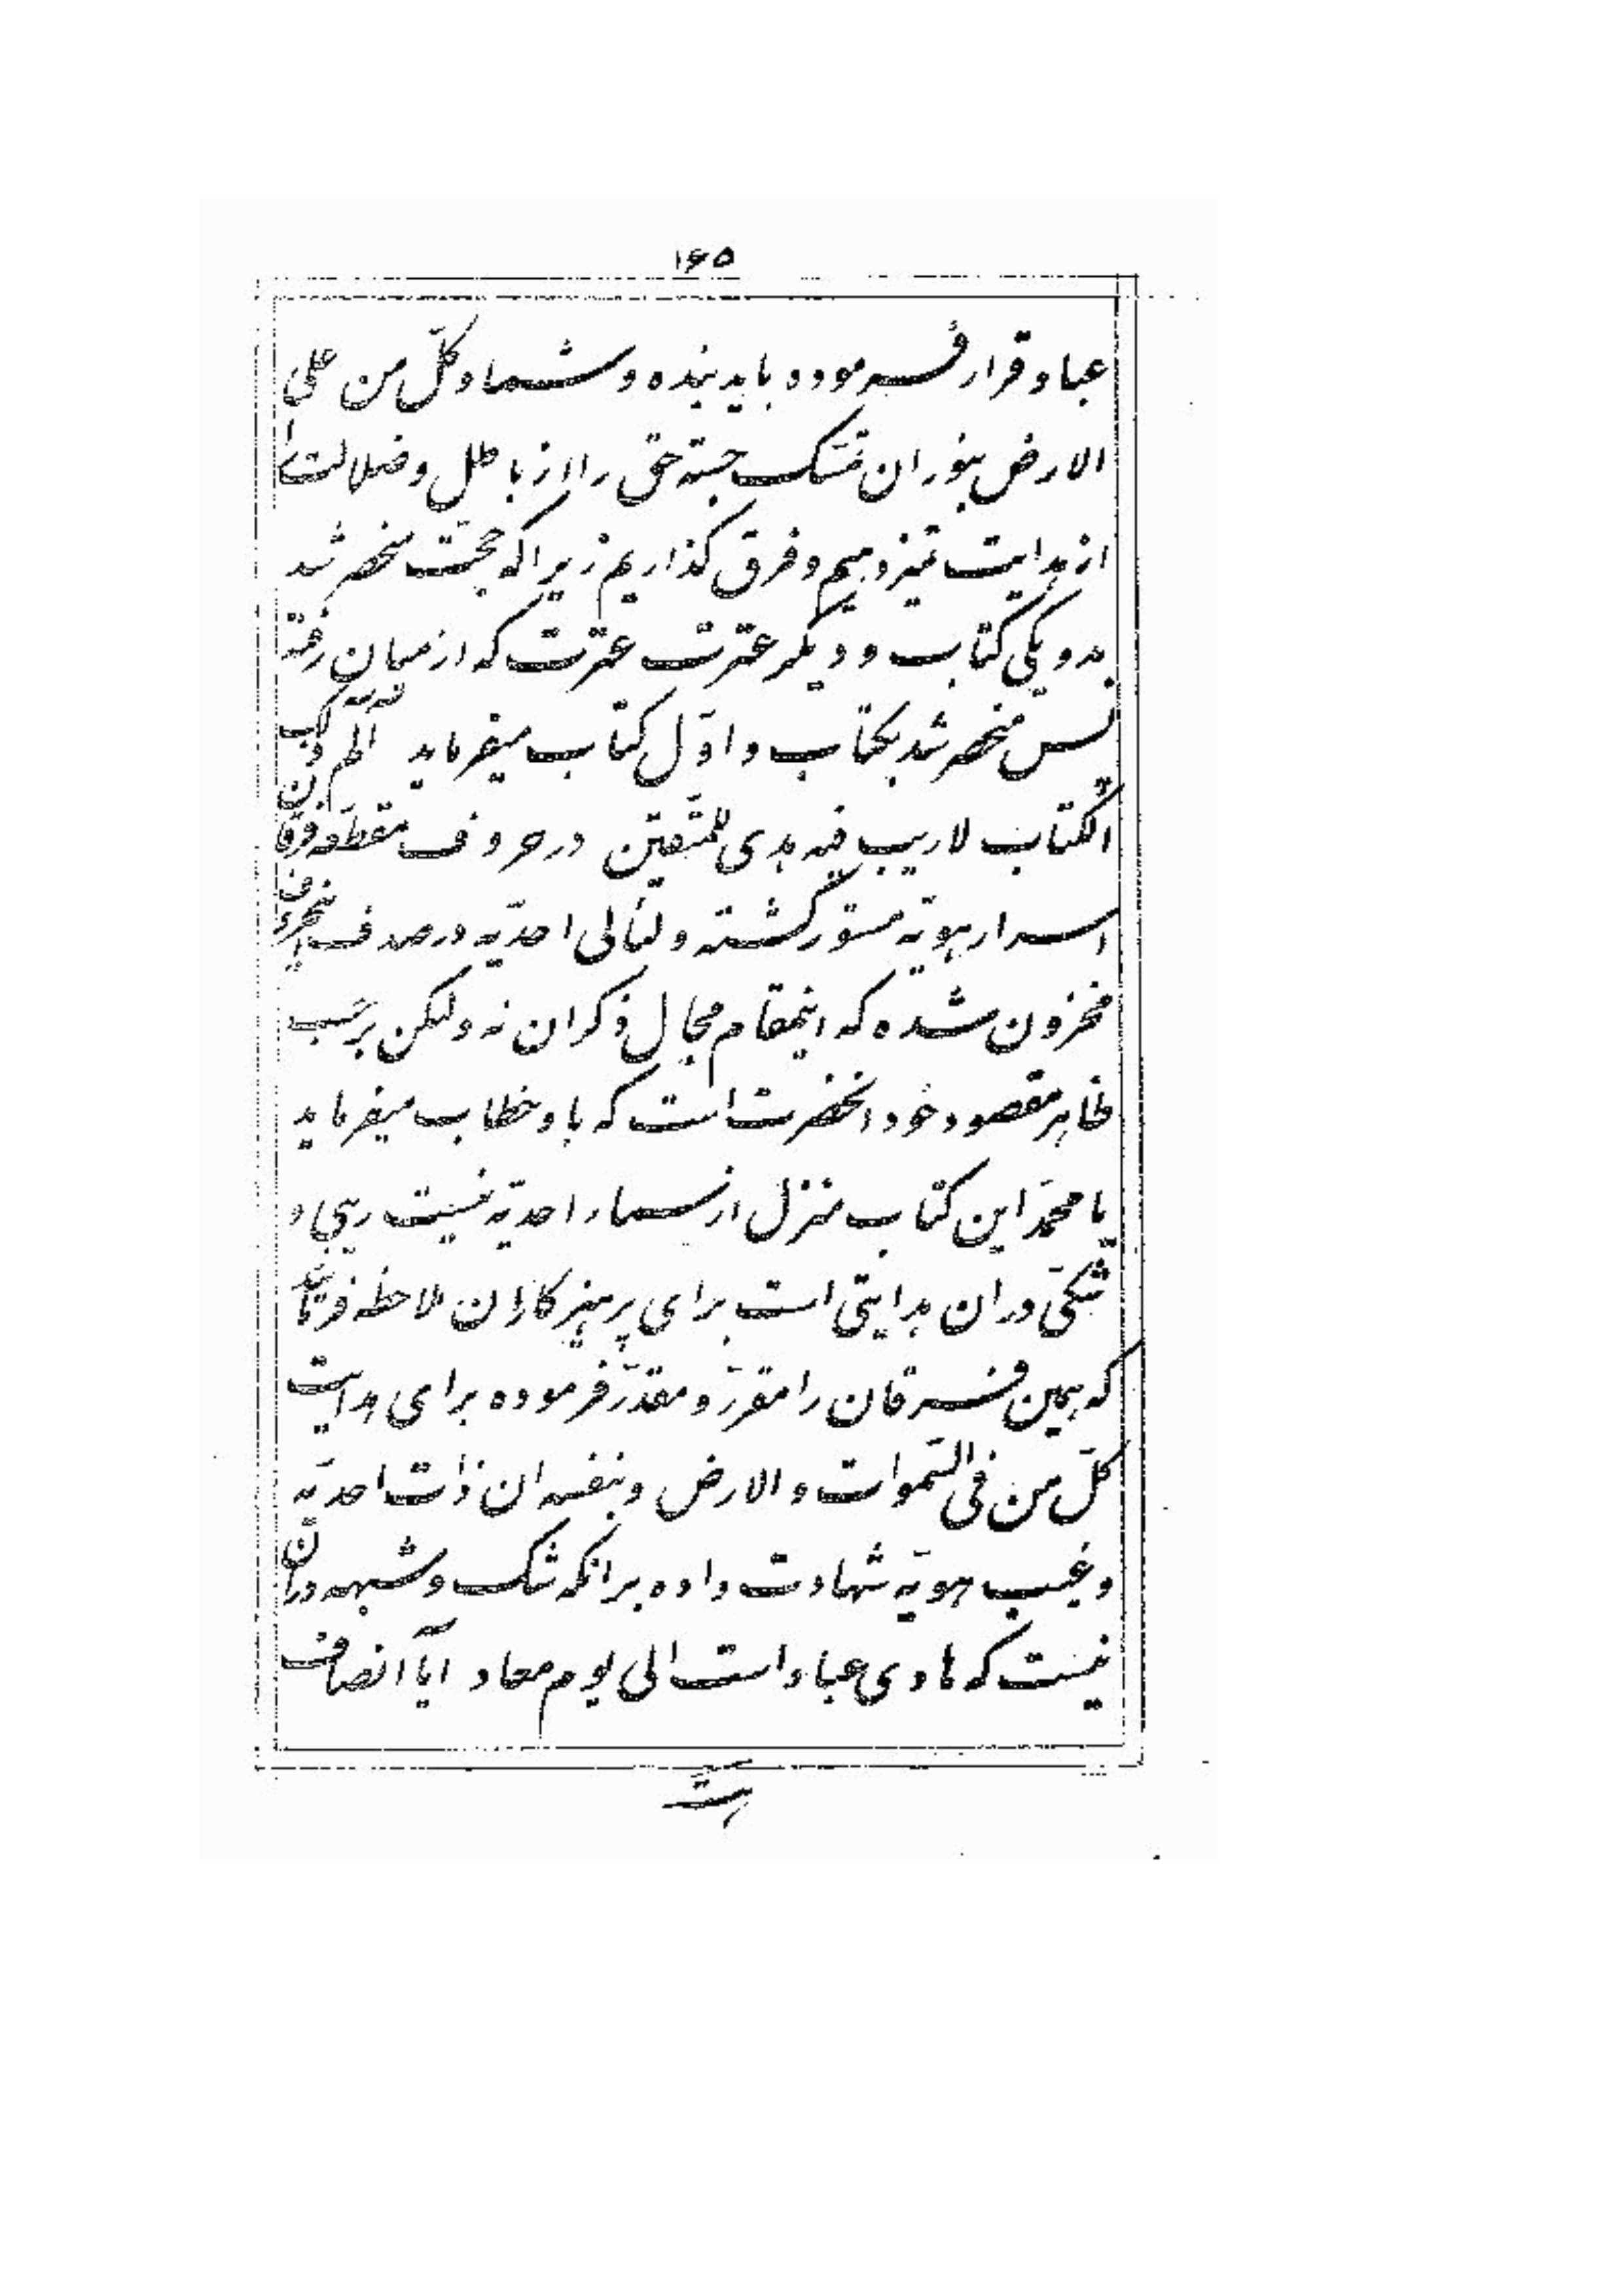 ۱۶۵
عباد قرار فرموده و باید بنده و شما و کلّ من علی
الارض بنور ان تمسّک جسته حق را از باطل و ضلالت را
از هدایت تمیز دهیم و فرق گذاریم زیرا که حجّت منحصر شد
بدو یکی کتاب و دیگر عترت عترت که از میان رفته
پس منحصر شد بکتاب و اوّل کتاب میفرماید الٓمٓ ذلک
الکتاب لا ریب فیه هدی للمتّقین در حروف مقطّعه فرقان
اسرار هویّه مستور گشته و لئالی احدیّه در صدف این حروف
مخزون شده که اینمقام مجال ذکر ان نه ولکن بر حسب
ظاهر مقصود خود انحضرت است که باو خطاب میفرماید
یا محمّد این کتاب منزل از سماء احدیّه نیست ریبی و
شکّی در ان هدایتی است برای پرهیزکاران ملاحظه فرمائید
که همین فرقان را مقرّر و مقدّر فرموده برای هدایت
کلّ من فی السّموات و الارض و بنفسه ان ذات احدیّه
و غیب هویّه شهادت داده بر انکه شک و شبهه در ان
نیست که هادی عباد است الی یوم معاد آیا انصاف
هست